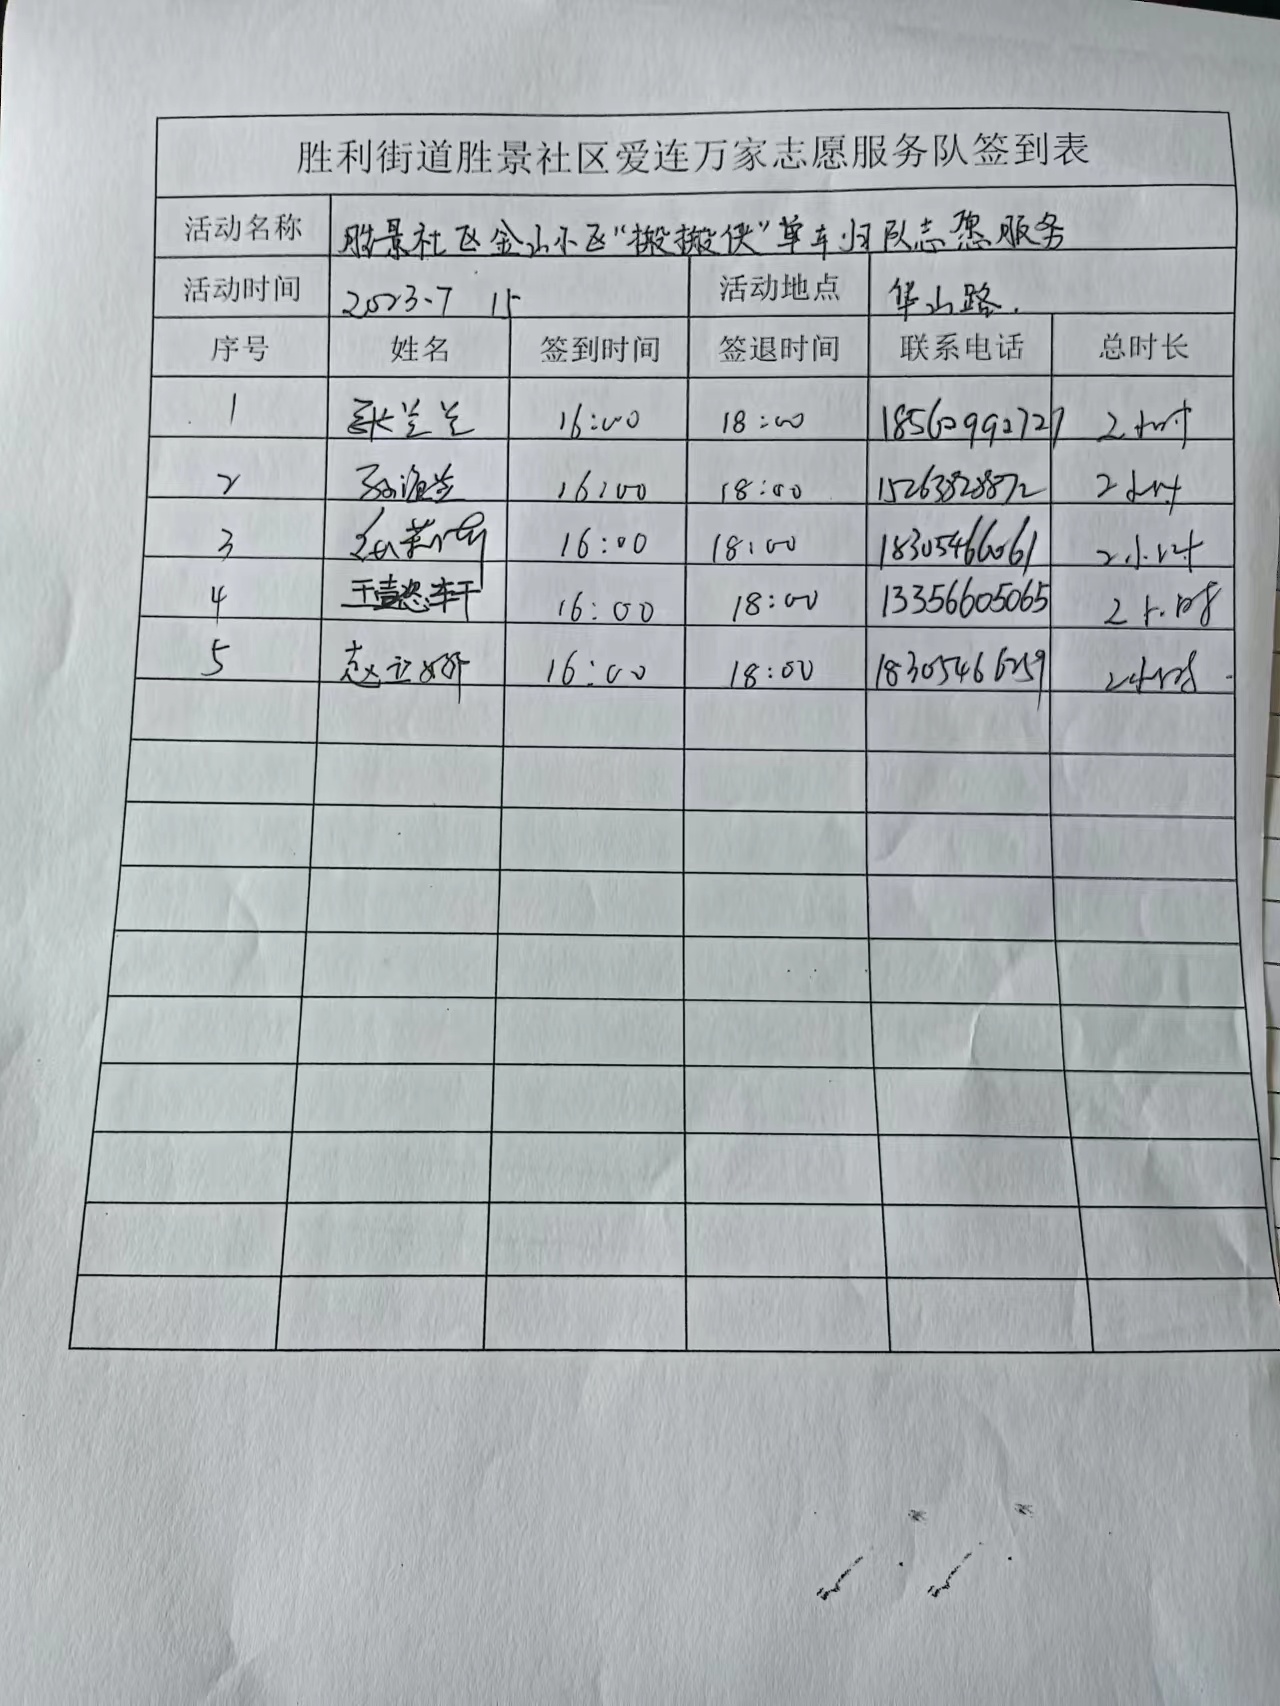 胜利街道胜景社区爱连万家志愿服务队签到表
活动名称 胜景社区金山小区“搬搬侠”单车归队志愿服务
活动时间 2023.7 15 活动地点 华山路.
序号 姓名 签到时间 签退时间 联系电话 总时长
1 张兰兰 16:00 18:00 18562992727 2小时
2 16:00 18:00 15263828872 2小时
3 16:00 18:00 18305466061 2小时
4 王壹恣轩 16:00 18:00 13356605065 2小时
5 赵立妍 16:00 18:00 18305466259 2小时